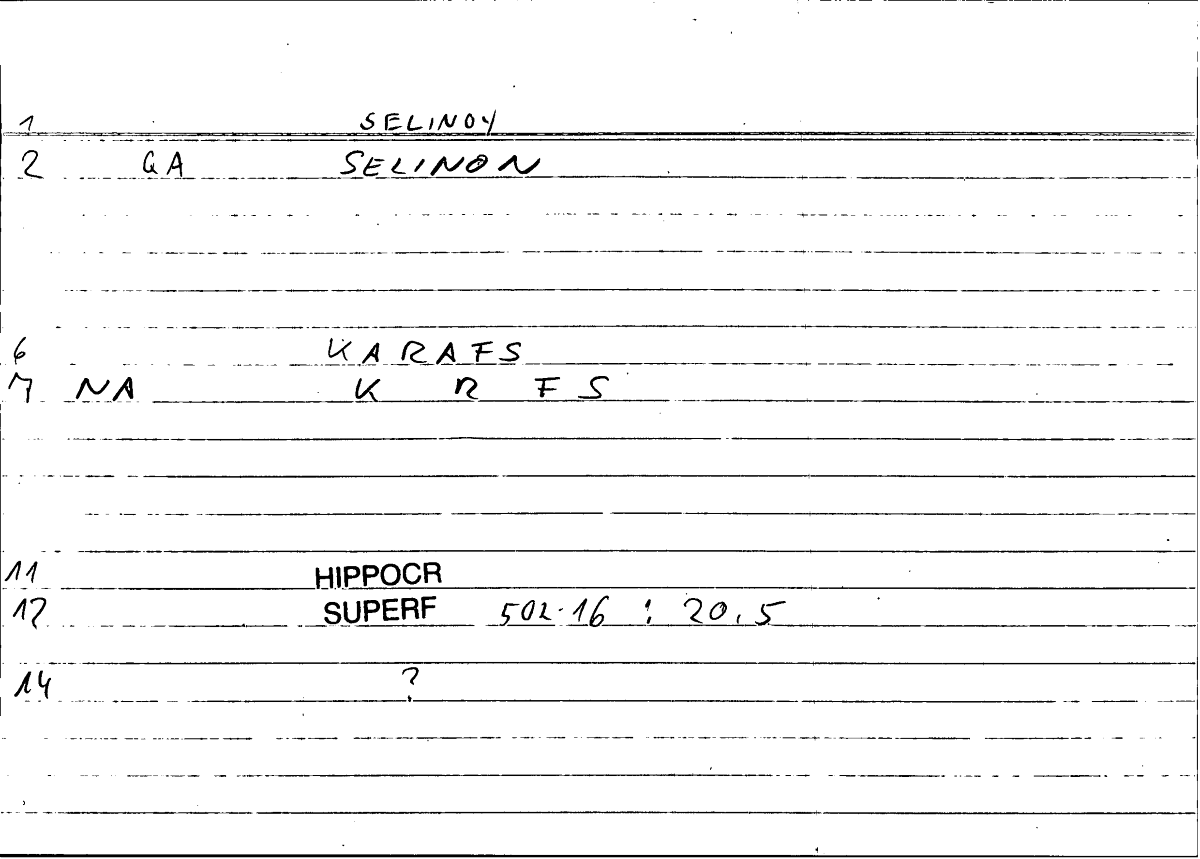 1 SELINOY
2 GA SELINON
6 KARAFS
7 NA K R F S
11 HIPPOCR
12 SUPERF 502.16 : 20,5
14 ?